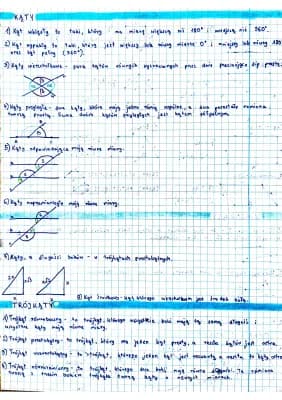 KĄTY
1) Kąt wklęsły to taki, który ma miarę większą niż 180° i mniejszą niż 360°.
2) Kąt wypukły to taki, który jest większy lub równy 0° i mniejszy lub równy 180
oraz kąt pełny (360°).
3) Kąty wierzchołkowe - para kątów wyznaczonych przez dwie przecinające się proste.
4) Kąty przyległe - dwa kąty, które mają jedno ramię wspólne, a dwa pozostałe ramiona
tworzą prostą. Suma dwóch kątów przyległych jest kątem półpełnym.
5) Kąty odpowiadające mają równe miary.
6) Kąty naprzemianległe mają równe miary.
7) Kąty, a długości boków - w trójkątach prostokątnych.
8) Kąt środkowy - kąt którego wierzchołkiem jest środek koła.
TRÓJKĄTY
1) Trójkąt równoboczny - to trójkąt, którego wszystkie boki mają tę samą długość i
wszystkie kąty mają równe miary.
2) Trójkąt prostokątny - to trójkąt, który ma jeden kąt prosty, a reszta kątów jest ostra.
3) Trójkąt rozwartokątny - to trójkąt, którego jeden kąt jest rozwarty, a reszta to kąty ostre
4) Trójkąt równoramienny - to trójkąt, którego dwa boki mają równe długości. Te ramiona
tworzą z trzecim bokiem trójkąta kąty o równych miarach.